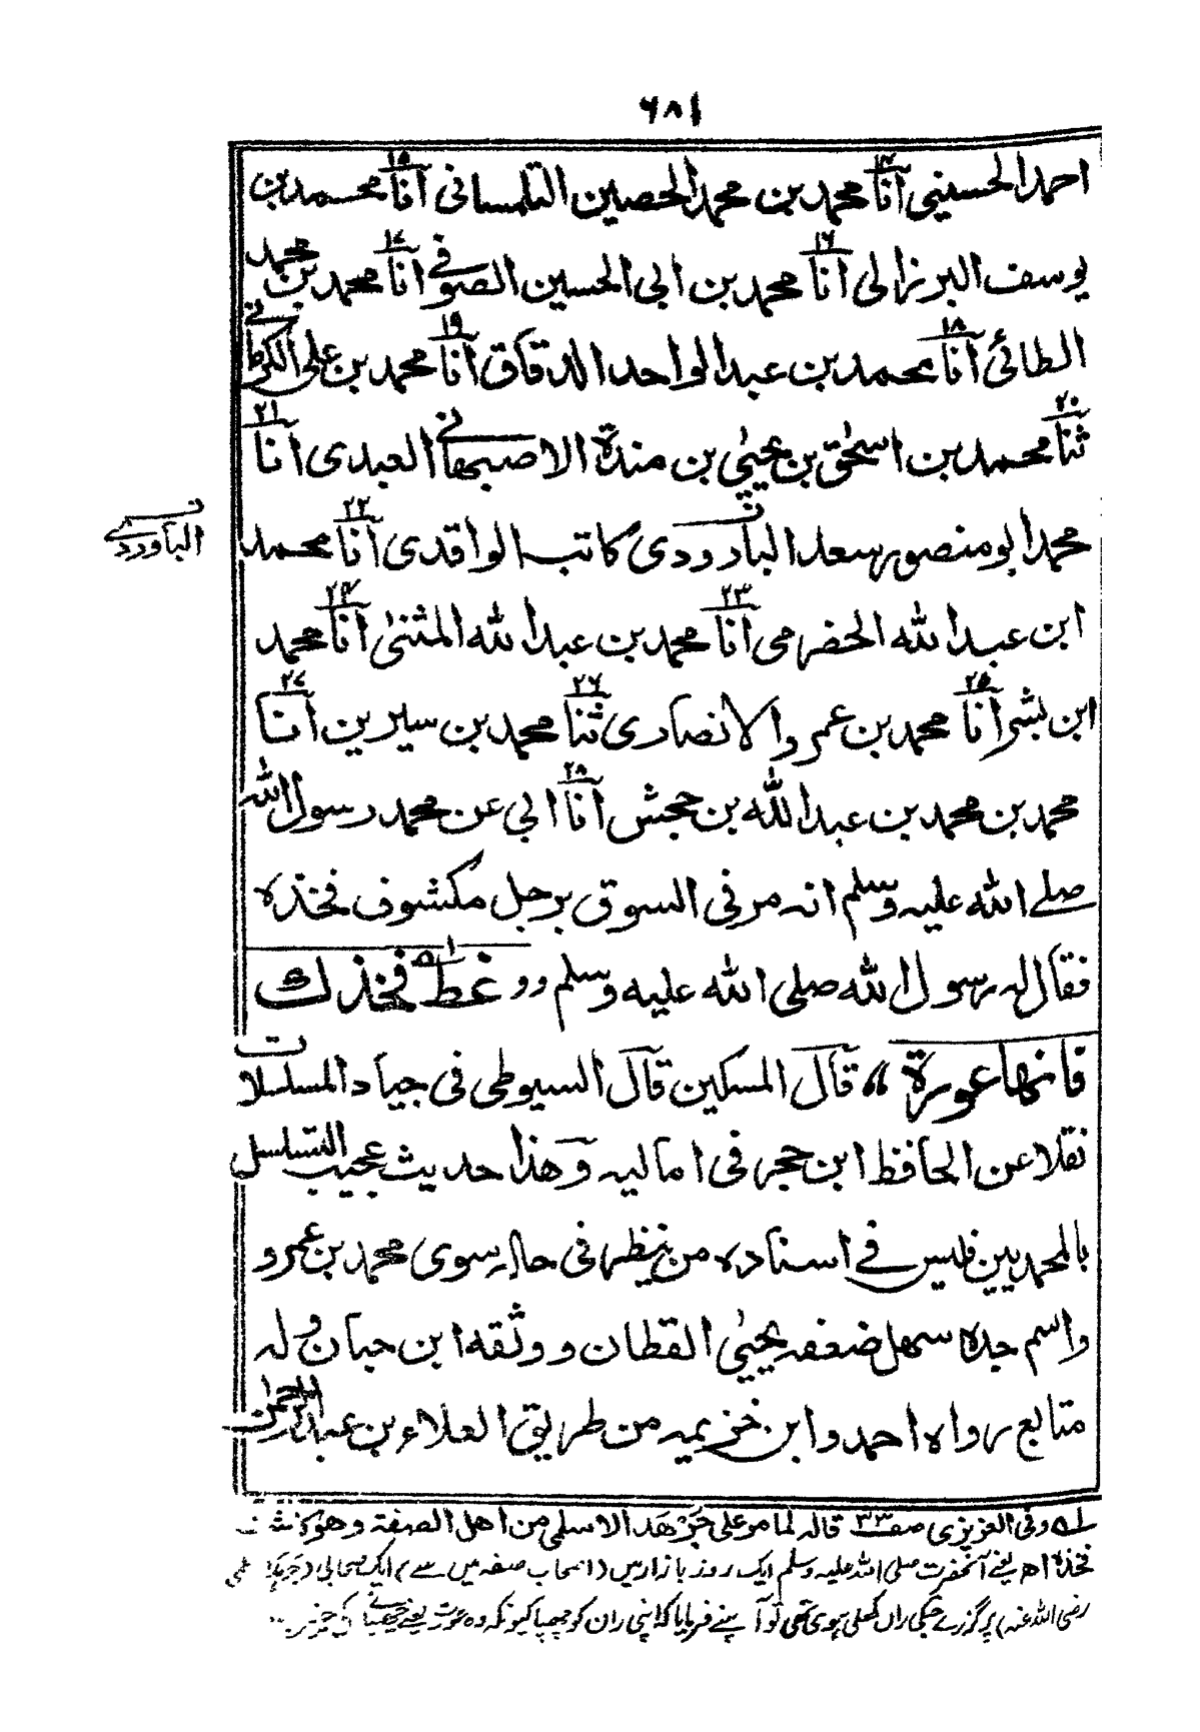 ٦٨١
احمد الحسيني أنا١٤ محمد بن محمد الحصين التلمساني أنا١٥ محمد بن
يوسف البرزالي أنا١٦ محمد بن ابي الحسين الصوفي أنا١٧ محمد بن محمد
الطائي أنا١٨ محمد بن عبد الواحد الدقاق أنا١٩ محمد بن علي الكرّاني
ثنا٢٠ محمد بن اسحٰق بن يحيٰى بن مندة الاصبهاني العبدي أنا٢١
محمد ابو منصور سعد الباوردي كاتب الواقدي أنا٢٢ محمد
الباوردي
ابن عبد الله الحضرمي أنا٢٣ محمد بن عبد الله المثنٰى أنا٢٤ محمد
ابن بشر أنا٢٥ محمد بن عمرو الانصاري ثنا٢٦ محمد بن سيرين أنا٢٧
محمد بن محمد بن عبد الله بن جحش أنا٢٨ ابي عن محمد رسول الله
صلے الله عليه وسلم انه مر في السوق برجل مكشوف فخذه
فقال له رسول الله صلى الله عليه وسلم ,, غط١ه فخذك
فانها عورة ،، قال المسكين قال السيوطي في جياد المسلسلات
نقلا عن الحافظ ابن حجر في اماليه وهذا حديث عجيب التسلسل
بالمحمديين فليس في اسناده من ينظر في حاله سوى محمد بن عمرو
واسم جده سهل ضعفه يحيٰى القطان ووثقه ابن حبان وله
متابع رواه احمد وابن خزيمه من طريق العلاء بن عبد الرحمٰن
١ه وفي العزيزي صف ٣٣ قاله لما مر على جرهد الاسلمي من اهل الصفة وهو كاشف
فخذه اھ یعنے آنحضرت صلی اللہ علیہ وسلم ایک روز بازار میں (اصحاب صفہ میں سے) ایک صحابی (جرہد
رضی اللہ عنہ) پر گزرے جنکی ران کھلی ہوی تھی تو آپنے فرمایا کہ اپنی ران کو چھپا کیونکہ وہ عورت یعنے چھپانے کی چیز